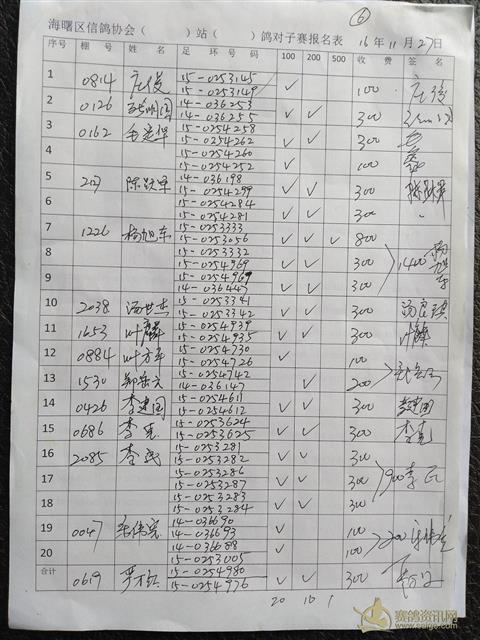 ⑥
海曙区信鸽协会（ ）站（ ）鸽对子赛报名表 16年11月27日
序号 棚号 姓名 足环号码 100 200 500 收费 签名
1 0814 庄俊 15-0253145 ✓ 100 庄俊
15-0253149
2 0126 14-036253 ✓ ✓ 300
14-036255
3 0162 15-0254258 ✓ ✓ 300
15-0254262
4 15-0254260 ✓ 100
15-0254252
5 207 陈跃军 14-036198 ✓ ✓ 300 陈跃军
15-0254299
6 15-0254284 ✓ ✓ 300 〃
15-0254281
7 1226 杨旭东 15-0253333 ✓ ✓ ✓ 800
15-0253056
8 15-0253332 ✓ ✓ 300 1400 杨旭东
15-0254969
9 15-0254969 ✓ ✓ 300
14-036447
10 2038 汤世杰 15-0253341 ✓ ✓ 300
15-0253342
11 1653 叶麟 15-0254939 ✓ ✓ 300 叶麟
15-0254935
12 0884 叶方平 15-0254730 ✓ 100
15-0254726
13 1530 15-0254742 ✓ 200
14-036147
14 0426 李建国 15-0254611 ✓ ✓ 300 李建国
15-0254612
15 0686 李宪 15-0253624 ✓ ✓ 300 李宪
15-0253625
16 2085 李民 15-0253281 ✓ ✓ 300
15-0253282
17 15-0253286 ✓ ✓ 300 900 李民
15-0253287
18 15-0253283 ✓ ✓ 300
15-0253284
19 0047 14-036690 ✓ 100
14-036693
20 14-036688 ✓ 100 200
15-0253005
合计 0619 15-0254980 ✓ ✓ 300
15-0254976
20 16 1
赛鸽资讯网
www.saige.com